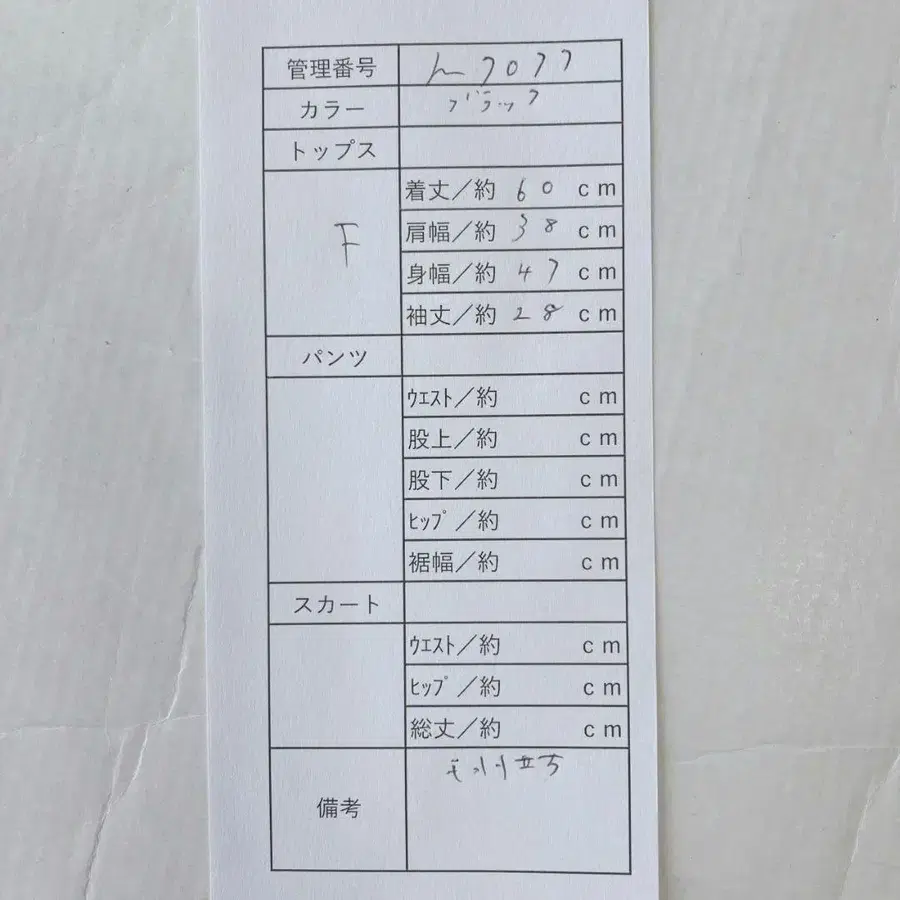 管理番号
カラー ブラック
トップス
F
着丈／約 60 cm
肩幅／約 38 cm
身幅／約 47 cm
袖丈／約 28 cm
パンツ
ｳｴｽﾄ／約 cm
股上／約 cm
股下／約 cm
ﾋｯﾌﾟ／約 cm
裾幅／約 cm
スカート
ｳｴｽﾄ／約 cm
ﾋｯﾌﾟ／約 cm
総丈／約 cm
備考